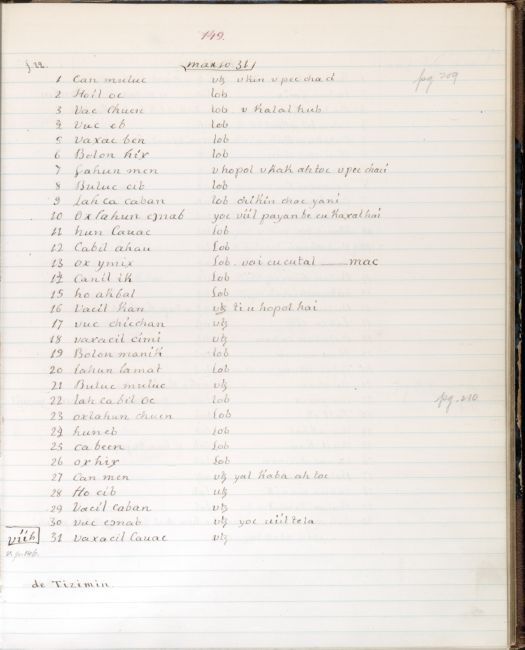 149.
f. 22. marso 31
1 Can muluc utz u kin u pec chac pg 209
2 Hoil oc lob
3 Vac chuen lob u kalal hub
4 Vuc eb lob
5 Vaxac ben lob
6 Bolon hix lob
7 Lahun men u hopol u kak ah toc u pec chaci
8 Buluc cib lob
9 lah ca caban lob chikin chac yani
10 Oxlahun eɔnab yoc uil payanbe cu kaxal hai
11 hun Cauac lob
12 Cabil ahau Lob
13 ox ymix Lob. vai cu cutal ___ mac
14 Canil ik Lob
15 ho akbal Lob
16 Vacil Kan utz ti u hopol hai
17 vuc chicchan utz
18 vaxacil cimi utz
19 Bolon manik lob
20 lahun lamat lob
21 Buluc muluc utz
22 lah cabil oc lob pg. 210
23 oxlahun chuen Lob
24 hun eb lob
25 ca been Lob
26 ox hix Lob
27 Can men utz yal kaba ah toc
28 Ho cib utz
29 Vacil caban utz
30 vuc eɔnab utz yoc uil tela
31 vaxacil Cauac utz
de Tizimin.